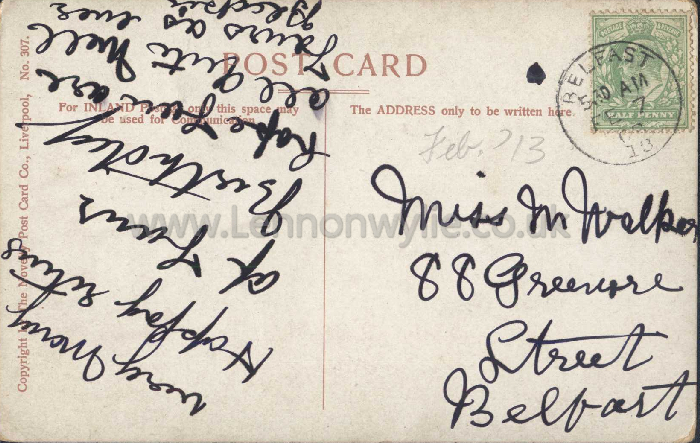 POST CARD
For INLAND Postage only this space may
be used for Communication.
The ADDRESS only to be written here.
Copyright by The Novelty Post Card Co., Liverpool, No. 307.
BELFAST
AM
7
13
HALF PENNY
Feb. '13
Miss M Walker
88 Greenore
Street
Belfast
very many
Happy returns
of yours
Birthday
hope you are
all quite well
yours as
ever
www.Lennonwylie.co.uk